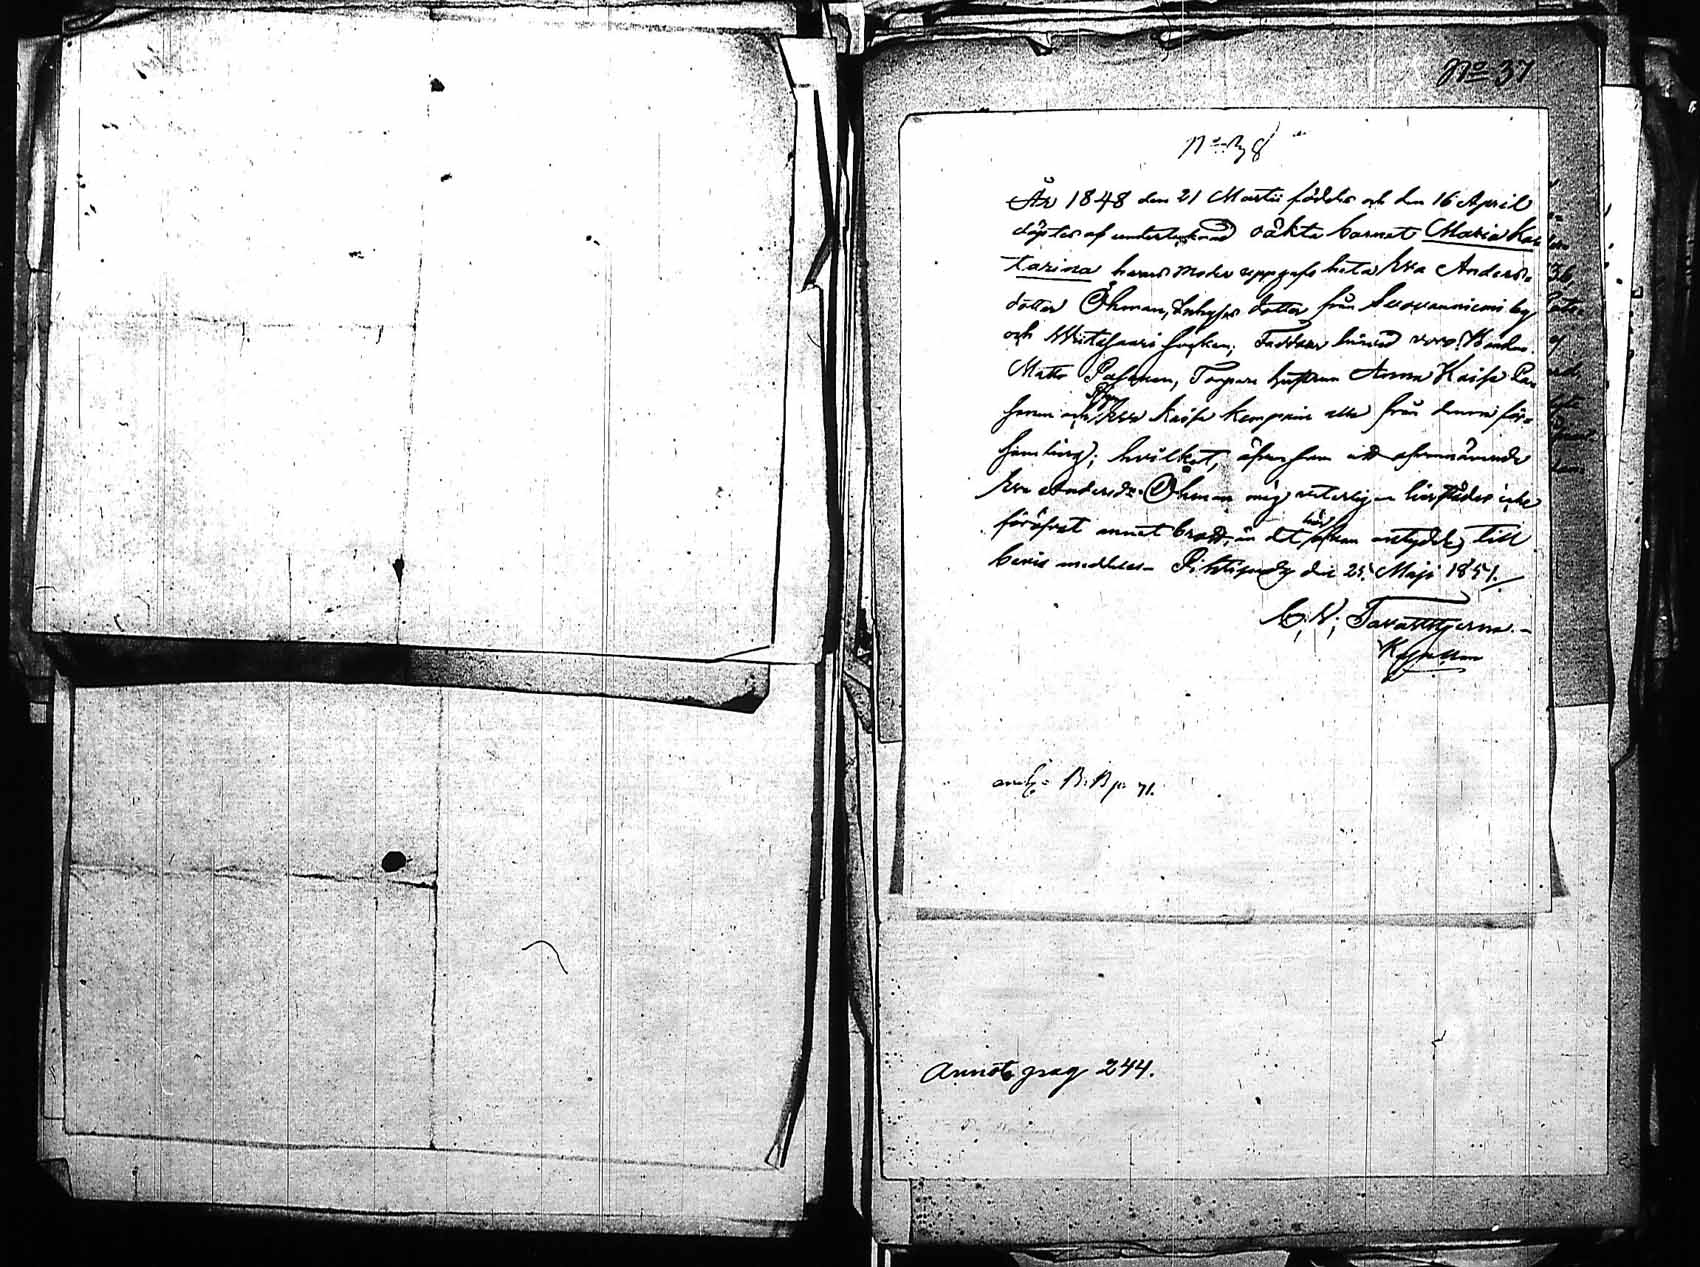 No 37
No 38
År 1848 den 21 Martii föddes och den 16 April
döptes af undertecknad oäkta barnet Maria
Karina hvars moder uppgafs heta Eva Anders-
dotter Öhman, Inhyses dotter från Suovanniemi by
och Wiitasaari socken; Faddrar härvid voro: Bonden
Matts Torpare hustrun Anna Kaisa
och Eva Kaisa Kemppain alla från denna för-
samling; hvilket, äfvensom att ofvannämnde
Eva Andersdr Öhman mig veterligen härstädes icke
föröfvat annat brott, än det här ofvan antydda, till
bevis meddelas. Pihtipudas den 25 Maji 1851.
C. N. Tavaststjerna.
Kapellan
B. B. p. 71.
Annot. pag 244.